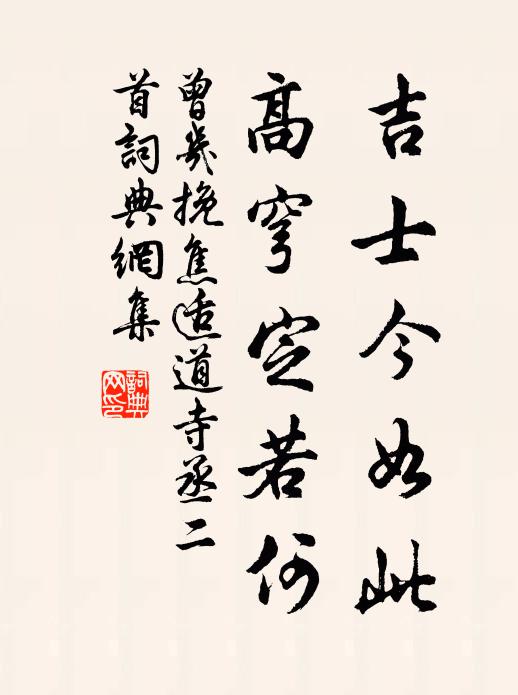 吉士今如此
高穹定若何
曾幾挽焦适道寺丞二
首詞典網集
詞典
网印